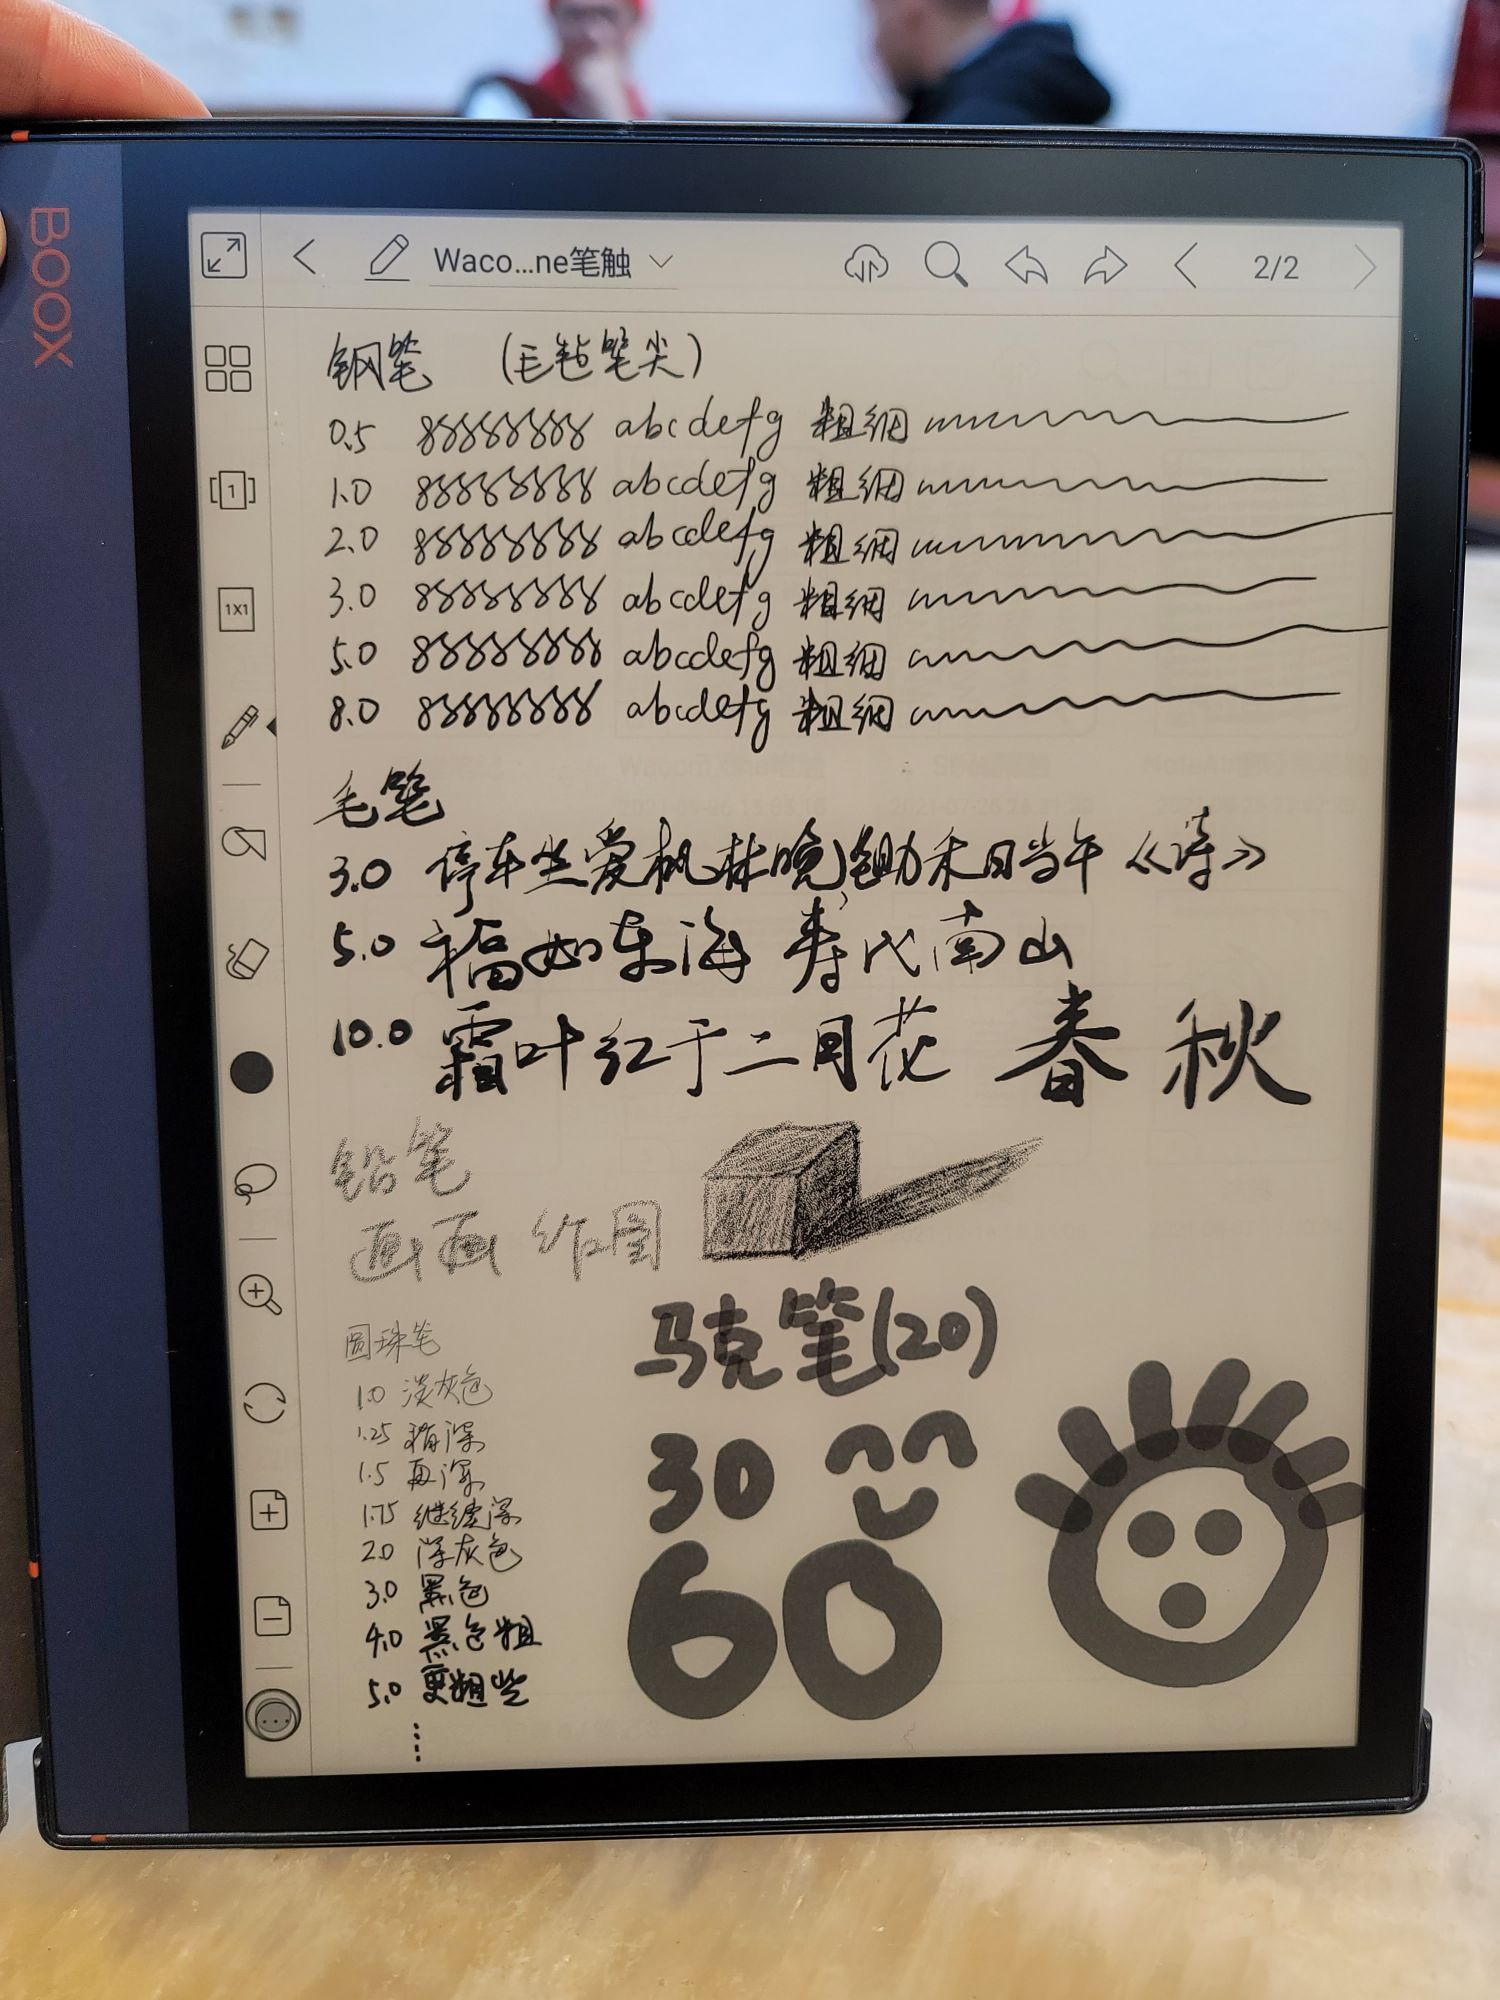 BOOX
Waco...ne笔触
2/2
1
1X1
钢笔 (毛毡笔尖)
0.5 88888888 abcdefg 粗细
1.0 88888888 abcdefg 粗细
2.0 88888888 abcdefg 粗细
3.0 88888888 abcdefg 粗细
5.0 88888888 abcdefg 粗细
8.0 88888888 abcdefg 粗细
毛笔
3.0 停车坐爱枫林晚,锄禾日当午《诗》
5.0 福如东海 寿比南山
10.0 霜叶红于二月花 春 秋
铅笔
画画 作图
圆珠笔
1.0 淡灰色
1.25 稍深
1.5 再深
1.75 继续深
2.0 深灰色
3.0 黑色
4.0 黑色粗
5.0 更粗些
……
马克笔(20)
30
60